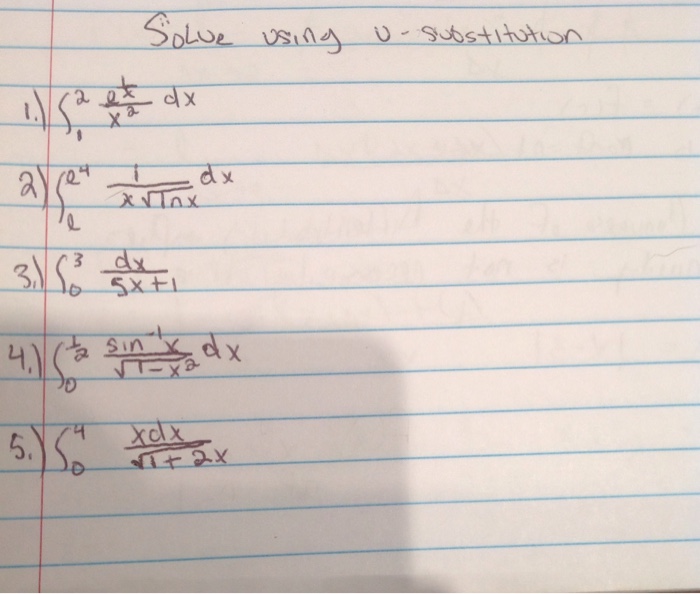 Solve using u-substitution
1.) ∫₁² e^(1/x)/x² dx
2) ∫ₑ^(e⁴) 1/(x√lnx) dx
3.) ∫₀³ dx/(5x+1)
4.) ∫₀^(1/2) sin⁻¹x/√(1-x²) dx
5.) ∫₀⁴ xdx/√(1+2x)